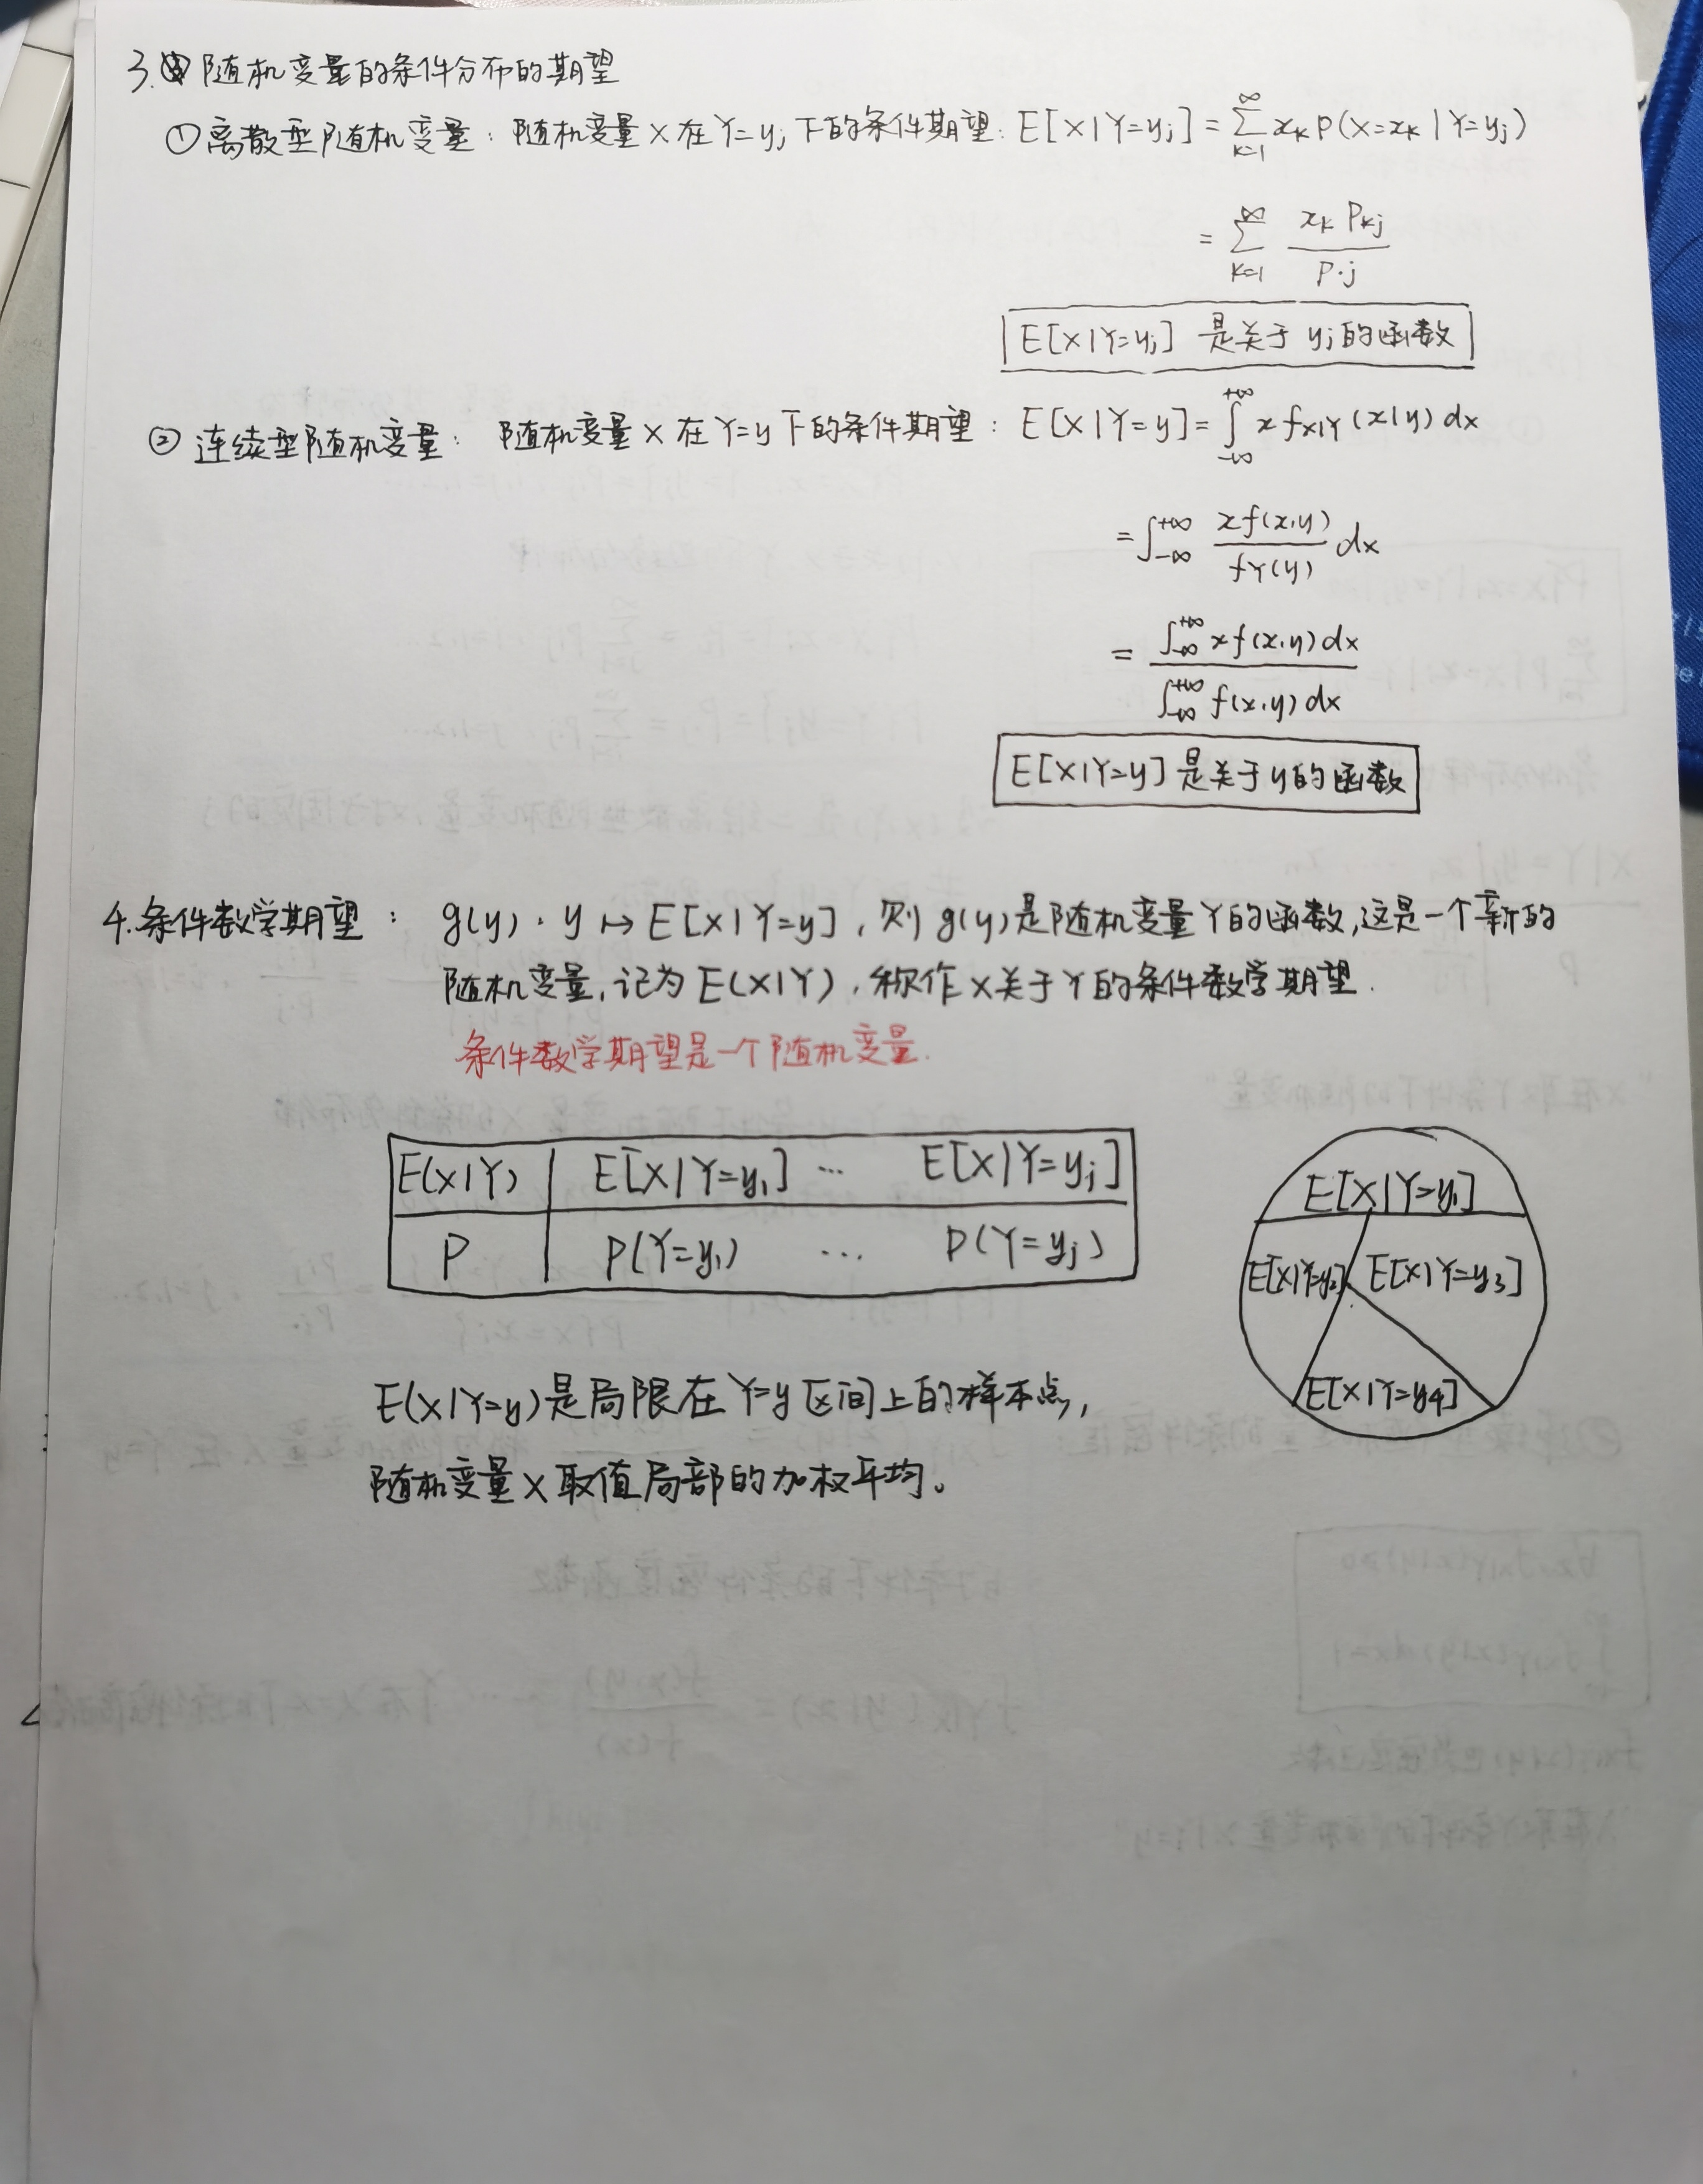 3. 随机变量的条件分布的期望
①离散型随机变量：随机变量X在Y=yj下的条件期望：E[X|Y=yj]=∑_{k=1}^{∞} xk P(X=xk|Y=yj)
=∑_{k=1}^{∞} xk Pkj / P·j
E[X|Y=yj] 是关于 yj的函数
② 连续型随机变量：随机变量X在Y=y下的条件期望：E[X|Y=y]=∫_{-∞}^{+∞} x fX|Y(x|y)dx
=∫_{-∞}^{+∞} xf(x,y) / fY(y) dx
= ∫_{-∞}^{+∞} xf(x,y)dx / ∫_{-∞}^{+∞} f(x,y)dx
E[X|Y=y]是关于y的函数
4.条件数学期望： g(y)：y↦E[X|Y=y]，则g(y)是随机变量Y的函数,这是一个新的
随机变量,记为E(X|Y)，称作X关于Y的条件数学期望.
条件数学期望是一个随机变量.
E(X|Y) E[X|Y=y1] … E[X|Y=yj]
P P(Y=y1) … P(Y=yj)
E[X|Y=y1]
E[X|Y=y2] E[X|Y=y3]
E[X|Y=y4]
E(X|Y=y)是局限在Y=y区间上的样本点,
随机变量X取值局部的加权平均。